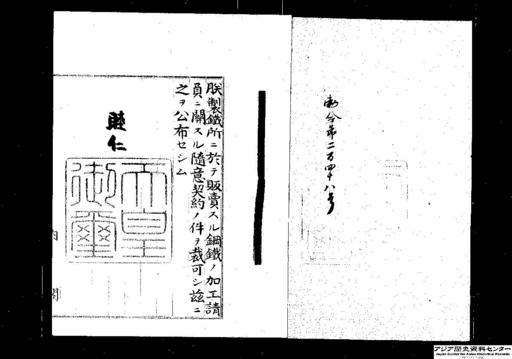 勅令第二百四十八号
朕製鐵所ニ於テ販賣スル鋼鐵ノ加工請
負ニ關スル隨意契約ノ件ヲ裁可シ茲ニ
之ヲ公布セシム
睦仁
天皇
御璽
内
閣
アジア歴史資料センター
Japan Center for Asian Historical Records